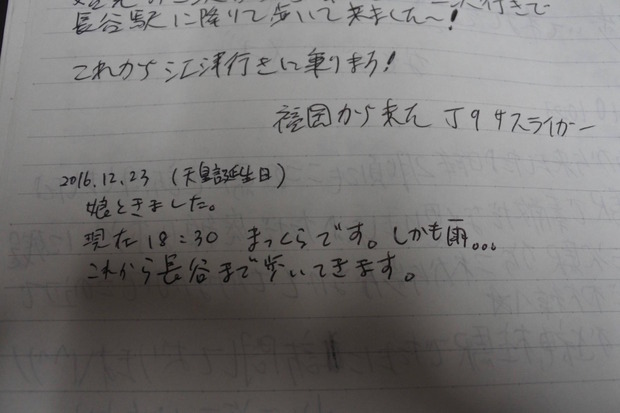 長谷駅に降りて歩いて来ました～!
これから江津行きに乗りまう!
福岡から来た J94スライガー
2016.12.23 (天皇誕生日)
娘ときました。
現在18:30 まっくらです。しかも雨...
これから長谷まで歩いてきます。